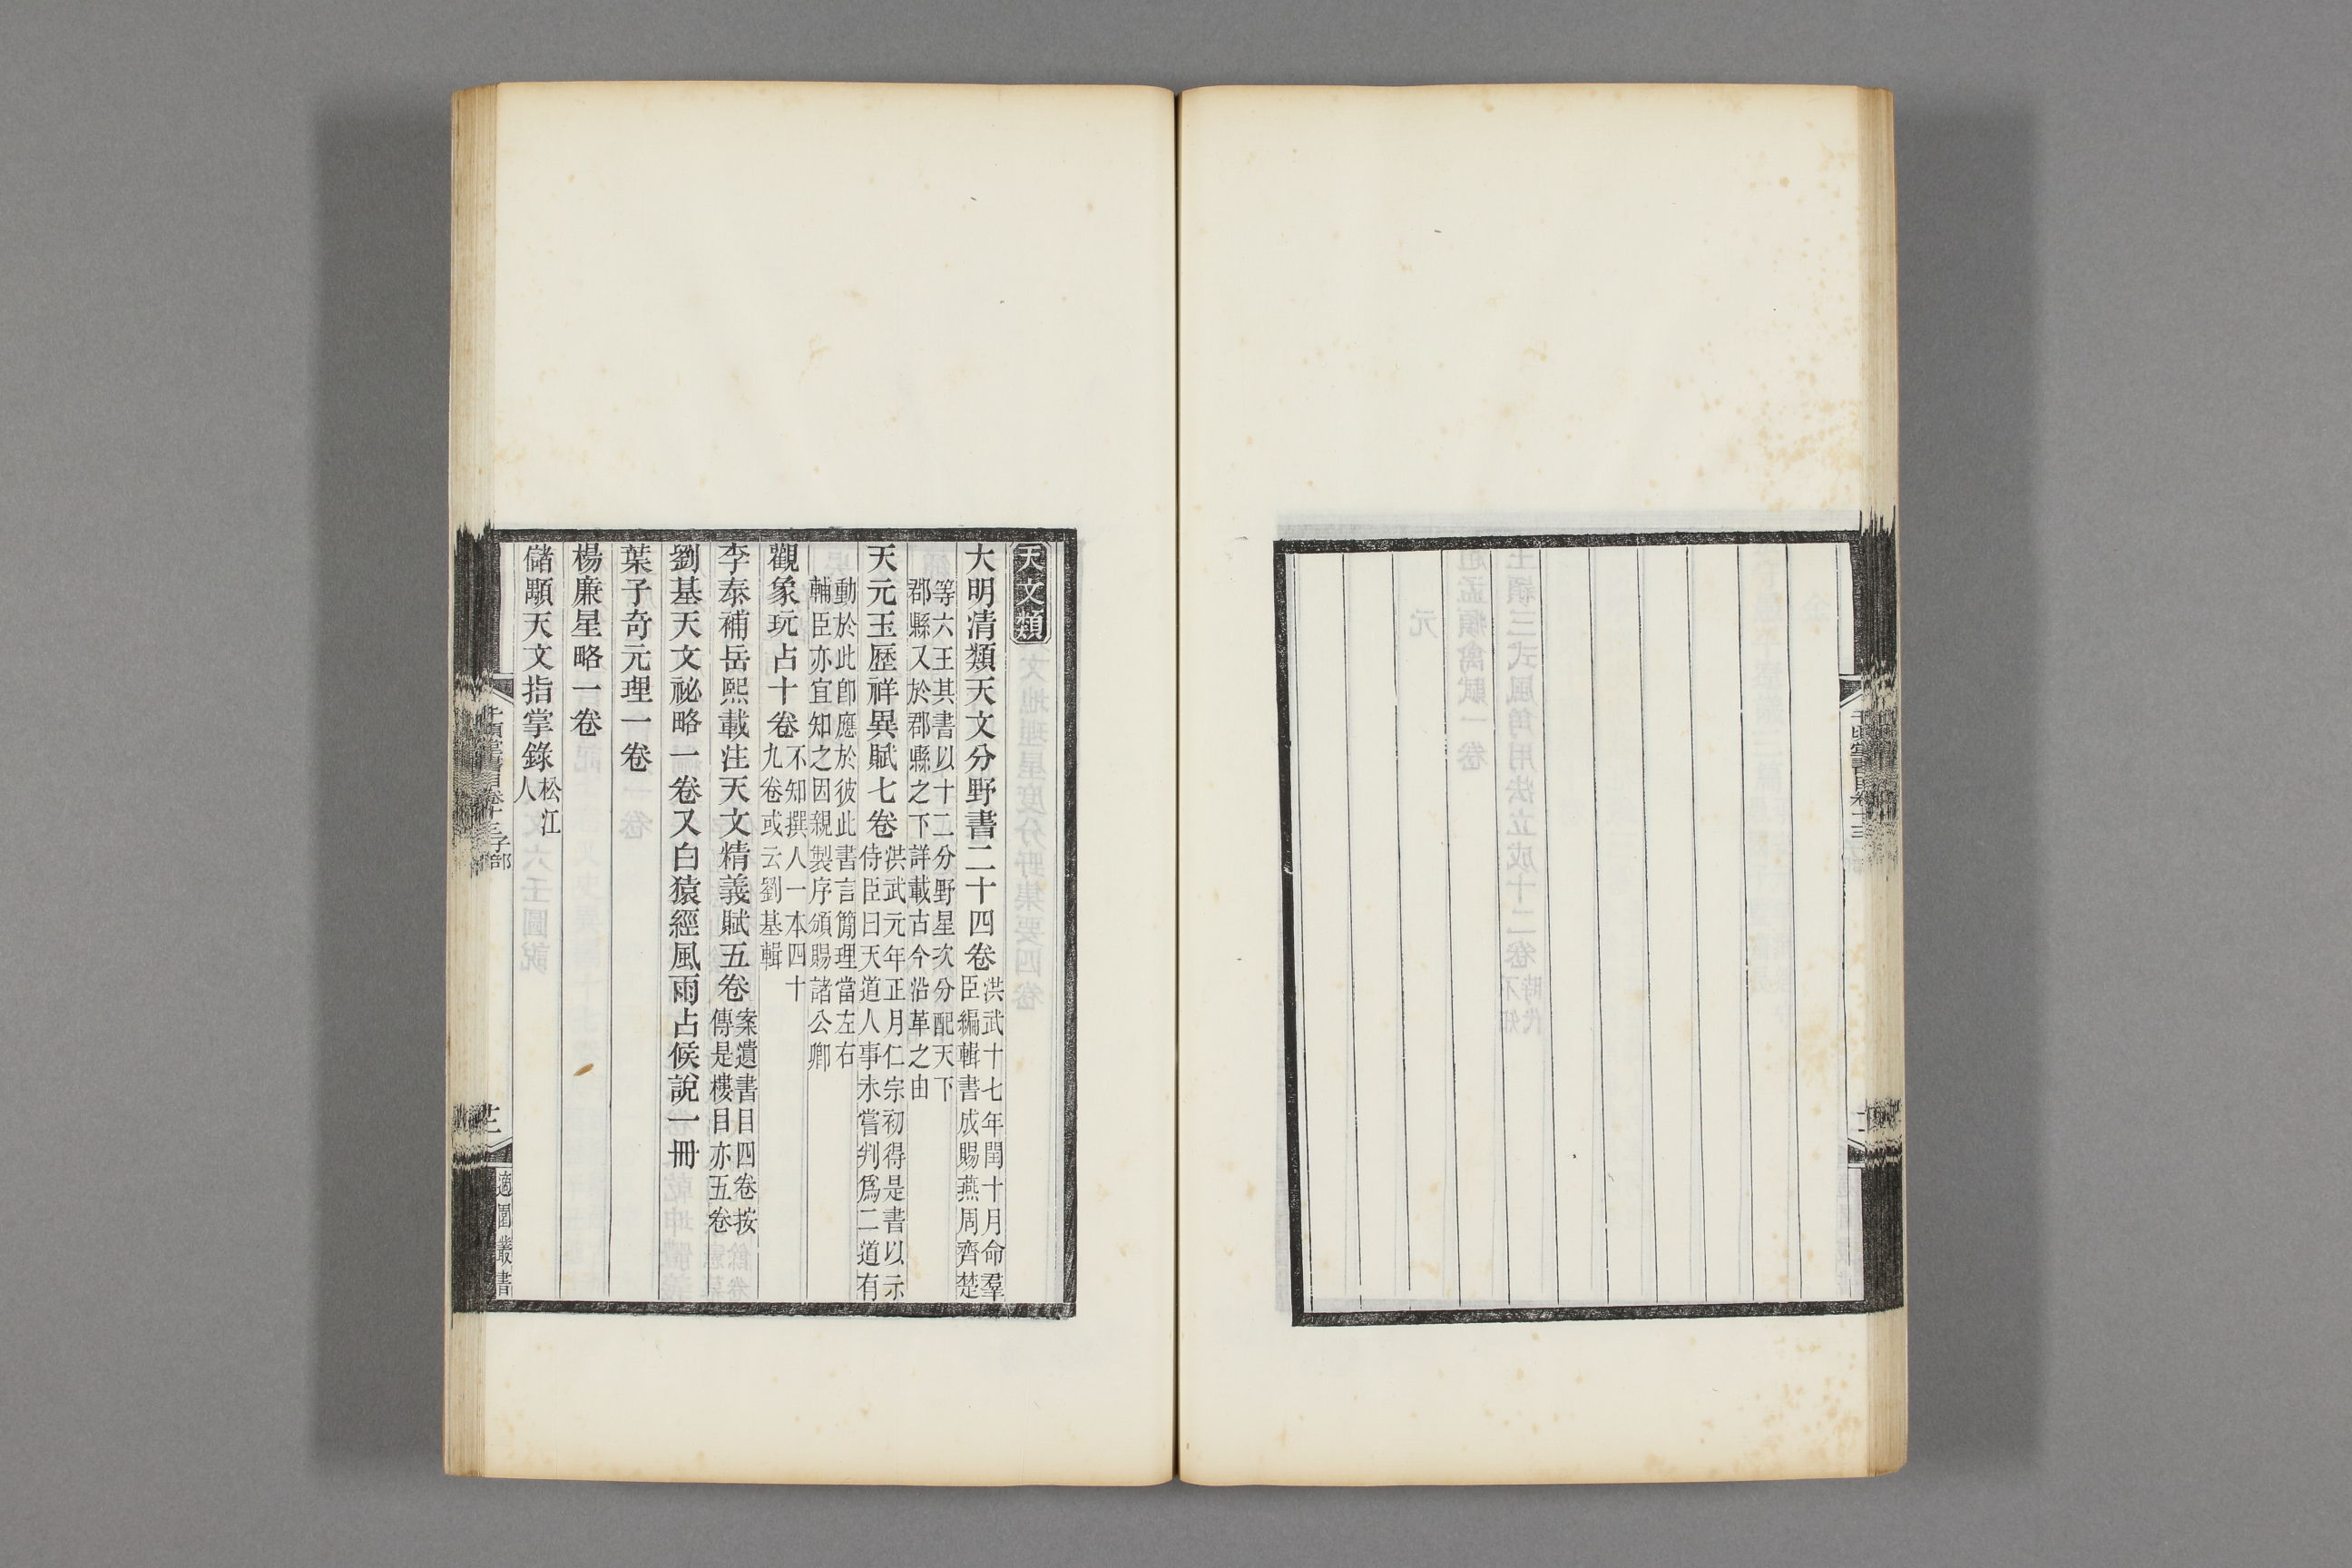 千頃堂書目卷十三
天文類
大明清類天文分野書二十四卷洪武十七年閏十月命羣
臣編輯書成賜燕周齊楚
等六王其書以十二分野星次分配天下
郡縣又於郡縣之下詳載古今沿革之由
天元玉歷祥異賦七卷洪武元年正月仁宗初得是書以示
侍臣曰天道人事未嘗判爲二道有
動於此卽應於彼此書言簡理當左右
輔臣亦宜知之因親製序頒賜諸公卿
觀象玩占十卷不知撰人一本四十
九卷或云劉基輯
李泰補岳熙載注天文精義賦五卷案遺書目四卷按
傳是樓目亦五卷
劉基天文祕略一卷又白猿經風雨占候說一冊
葉子奇元理一卷
楊廉星略一卷
儲顒天文指掌錄松江
人
千頃堂書目卷十三子部
適園叢書